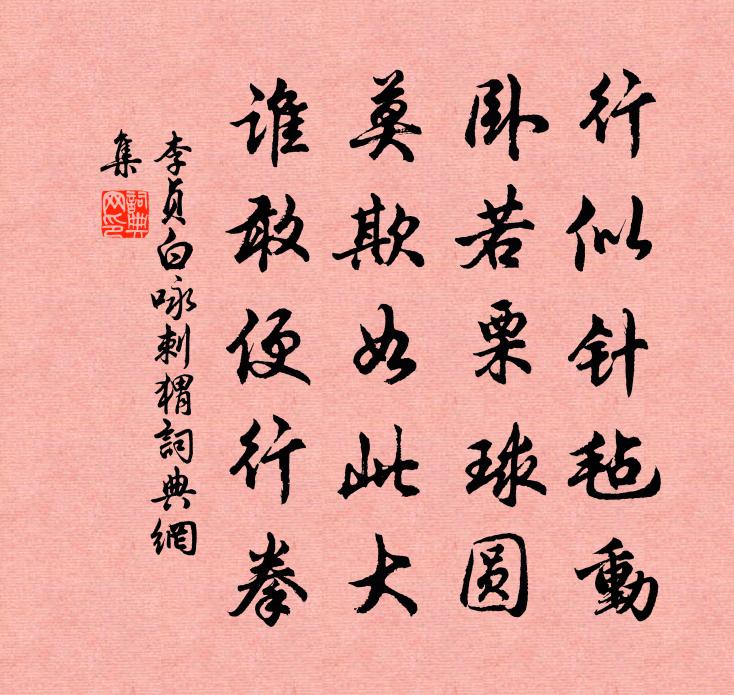 行似针毡動
卧若栗球圆
莫欺如此大
谁敢便行拳
李貞白咏刺猬詞典網
集
詞典
网印